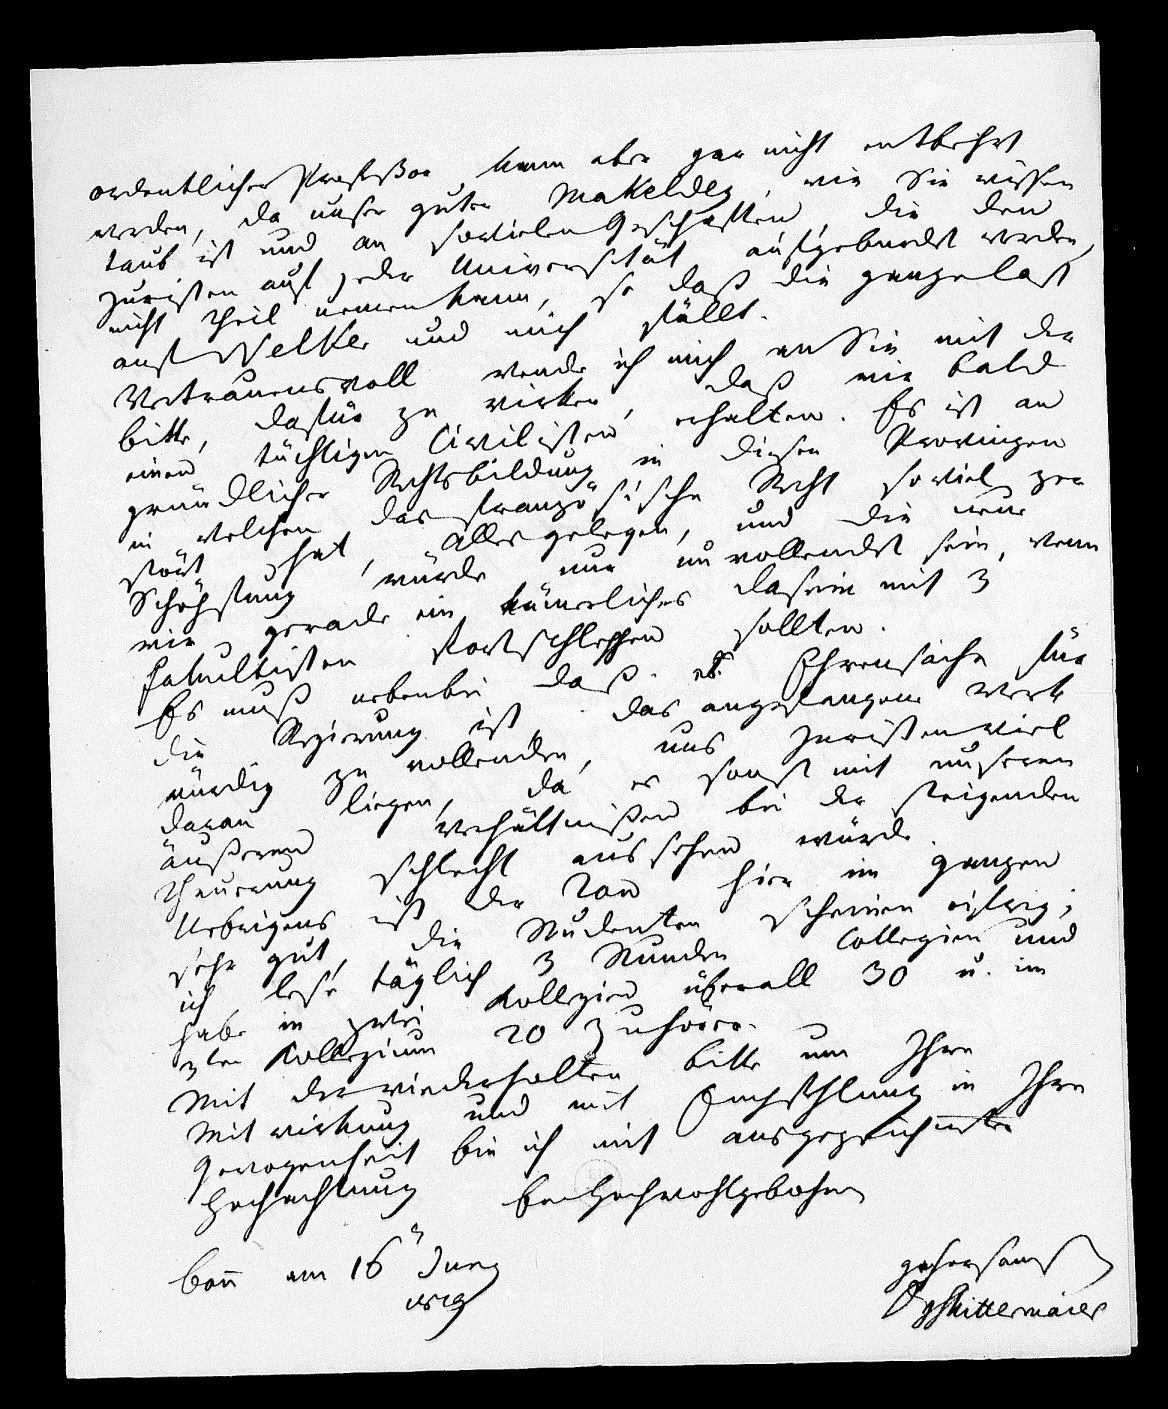 ordentlicher Profeßor kann aber gar nicht entbehrt
werden, da unser guter Makeldey, wie Sie wissen
taub ist und an sovielen Geschäften, die den
Juristen auf jeder Universität aufgebürdet werden,
nicht Theil nemen kann, so daß die ganze last
auf Welker und mich fällt.
Vertrauensvoll wende ich mich an Sie mit der
bitte, dafür zu wirken, daß wir bald
einen tüchtigen Civilisten erhalten. Es ist an
gründlicher Rechtsbildung in diesen Provinzen
in welchen das französische Recht soviel zer
stört hat, alles gelegen, und die neue
Schöpfung würde nur unvollendet sein, wenn
wir gerade ein kümerliches Dasein mit 3
Fakultisten fortschleppen sollten.
Es muß nebenbei daß es Ehrensache für
die Regierung ist das angefangene Werk
würdig zu vollenden, uns Juristen viel
daran liegen, da es sonst mit unseren
äußeren Verhältnißen bei der steigenden
Theuerung schlecht aussehen würde.
Uebrigens ist der Ton hier im ganzen
sehr gut, die Studenten scheinen eifrig;
ich lese täglich 3 Stunden Collegien und
habe in zwei Kollegien überall 30 u. im
3ten Kollegium 20 Zuhörer.
Mit der wiederholten bitte um Ihre
Mitwirkung und mit Empfehlung in Ihre
Gewogenheit bin ich mit ausgezeichneter
Hochachtung Euer Hochwohlgebohren
bonn am 16 Juny
1819
gehorsamst
Dr Mittermaier